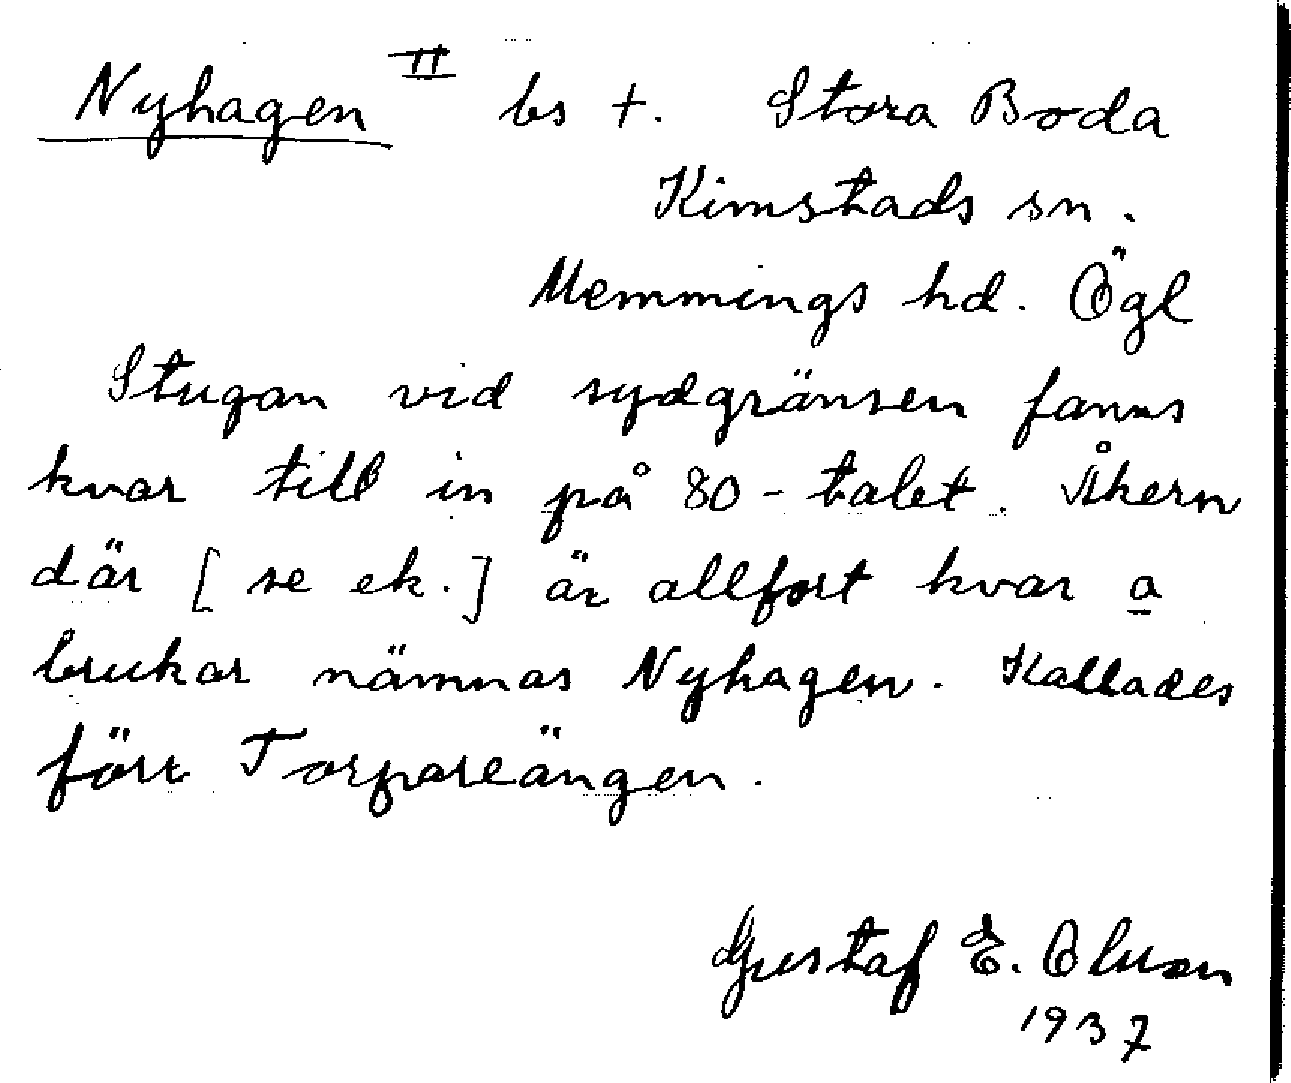 Nyhagen II bs +. Stora Boda
Kimstads sn.
Memmings hd. Ögl
Stugan vid sydgränsen fanns
kvar till in på 80-talet. Åkern
där [se ek.] är allfort kvar a
brukar nämnas Nyhagen. Kallades
förr Torpareängen.
Gustaf E. Olsson
1937